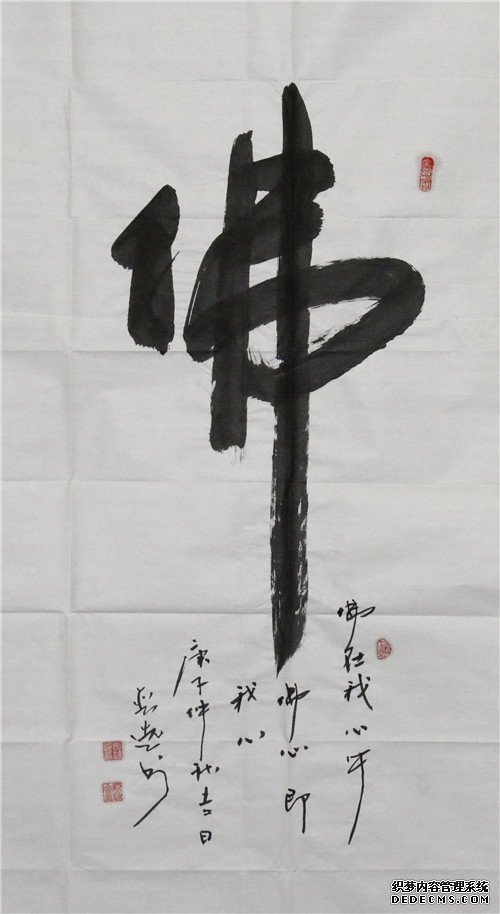 佛
佛在我心中
佛心即
我心
庚子仲秋吉日
织梦内容管理系统
DEDECMS.COM